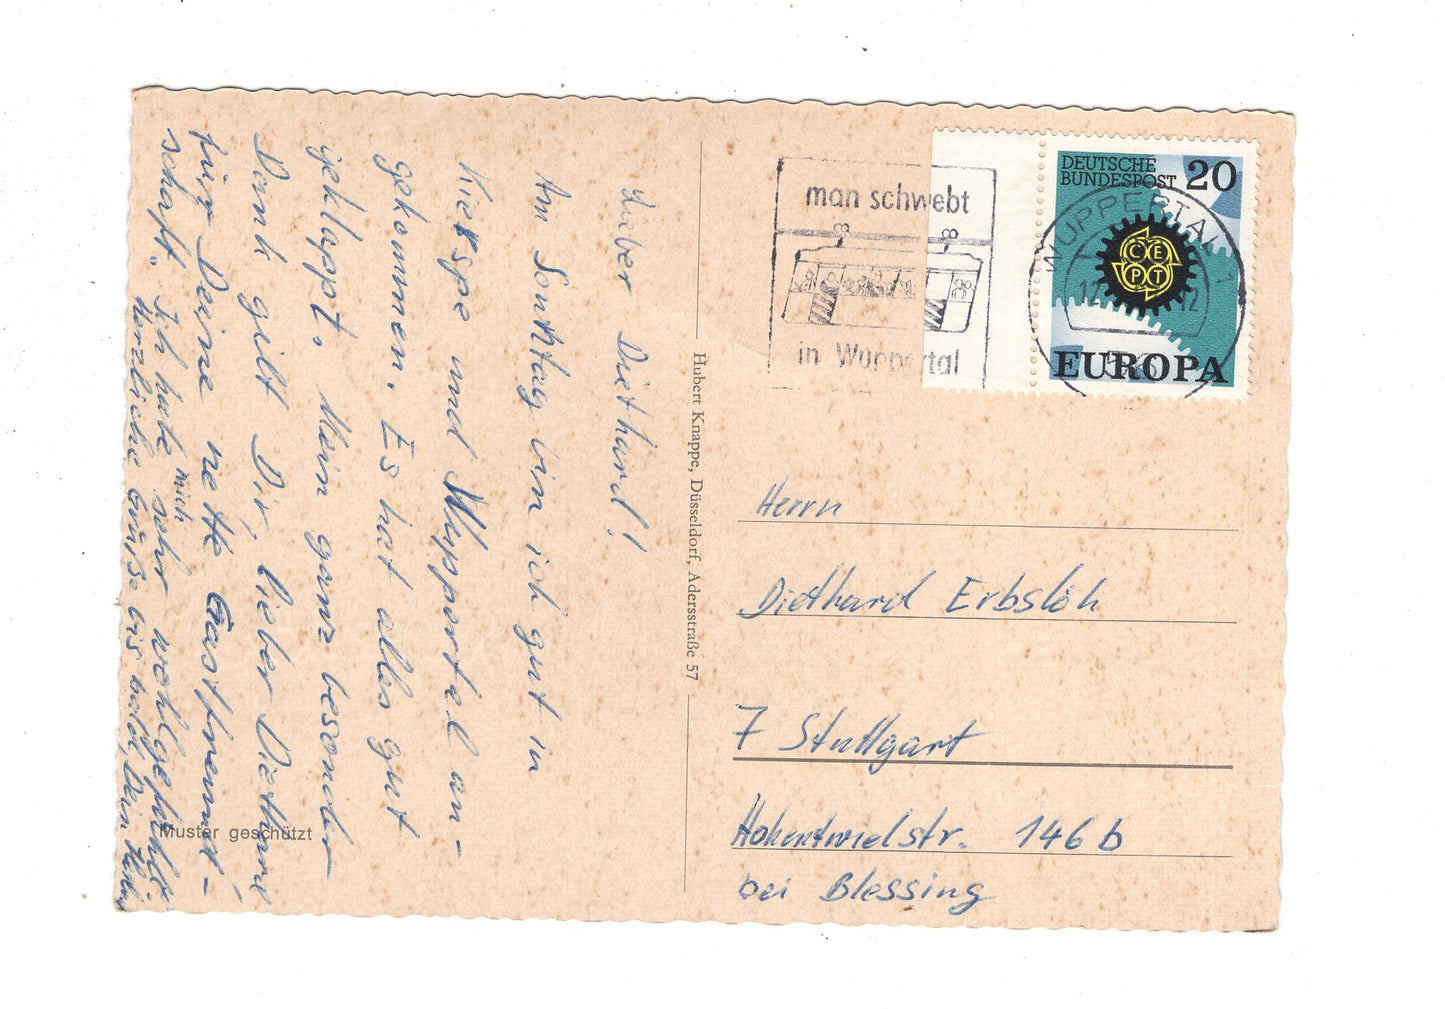 Lieber Diethard!
Am Sonntag bin ich gut in
Kierspe und Wuppertal an-
gekommen. Es hat alles gut
geklappt. Mein ganz besonder
Dank gilt Dir, lieber Diethard
für Deine nette Gastfreund-
schaft. Ich habe mich sehr wohlgefühlt.
Herzliche Grüße bis bald, Dein
Muster geschützt
Hubert Knappe, Düsseldorf, Adersstraße 57
man schwebt
in Wuppertal
DEUTSCHE
BUNDESPOST 20
CEPT
EUROPA
WUPPERTAL 1
Herrn
Diethard Erbslöh
7 Stuttgart
Hohentwielstr. 146 b
bei Blessing